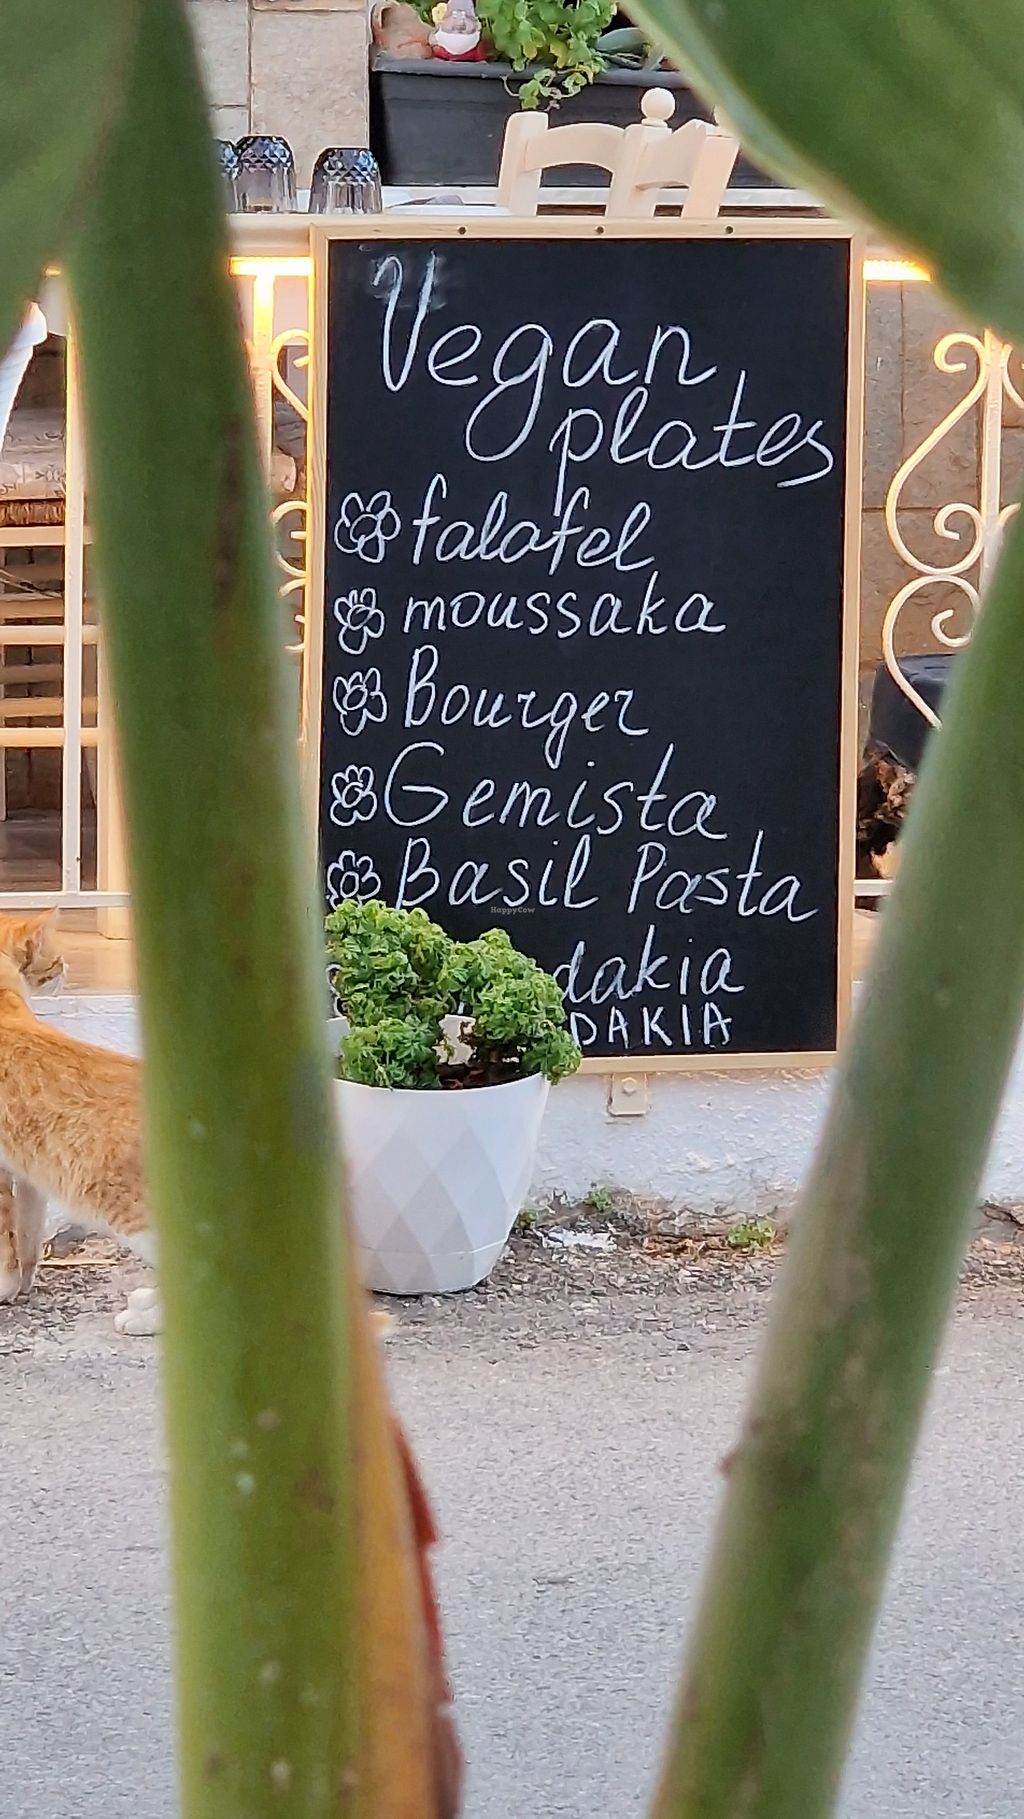 Vegan
plates
falafel
moussaka
Bourger
Gemista
Basil Pasta
HappyCow
dakia
DAKIA